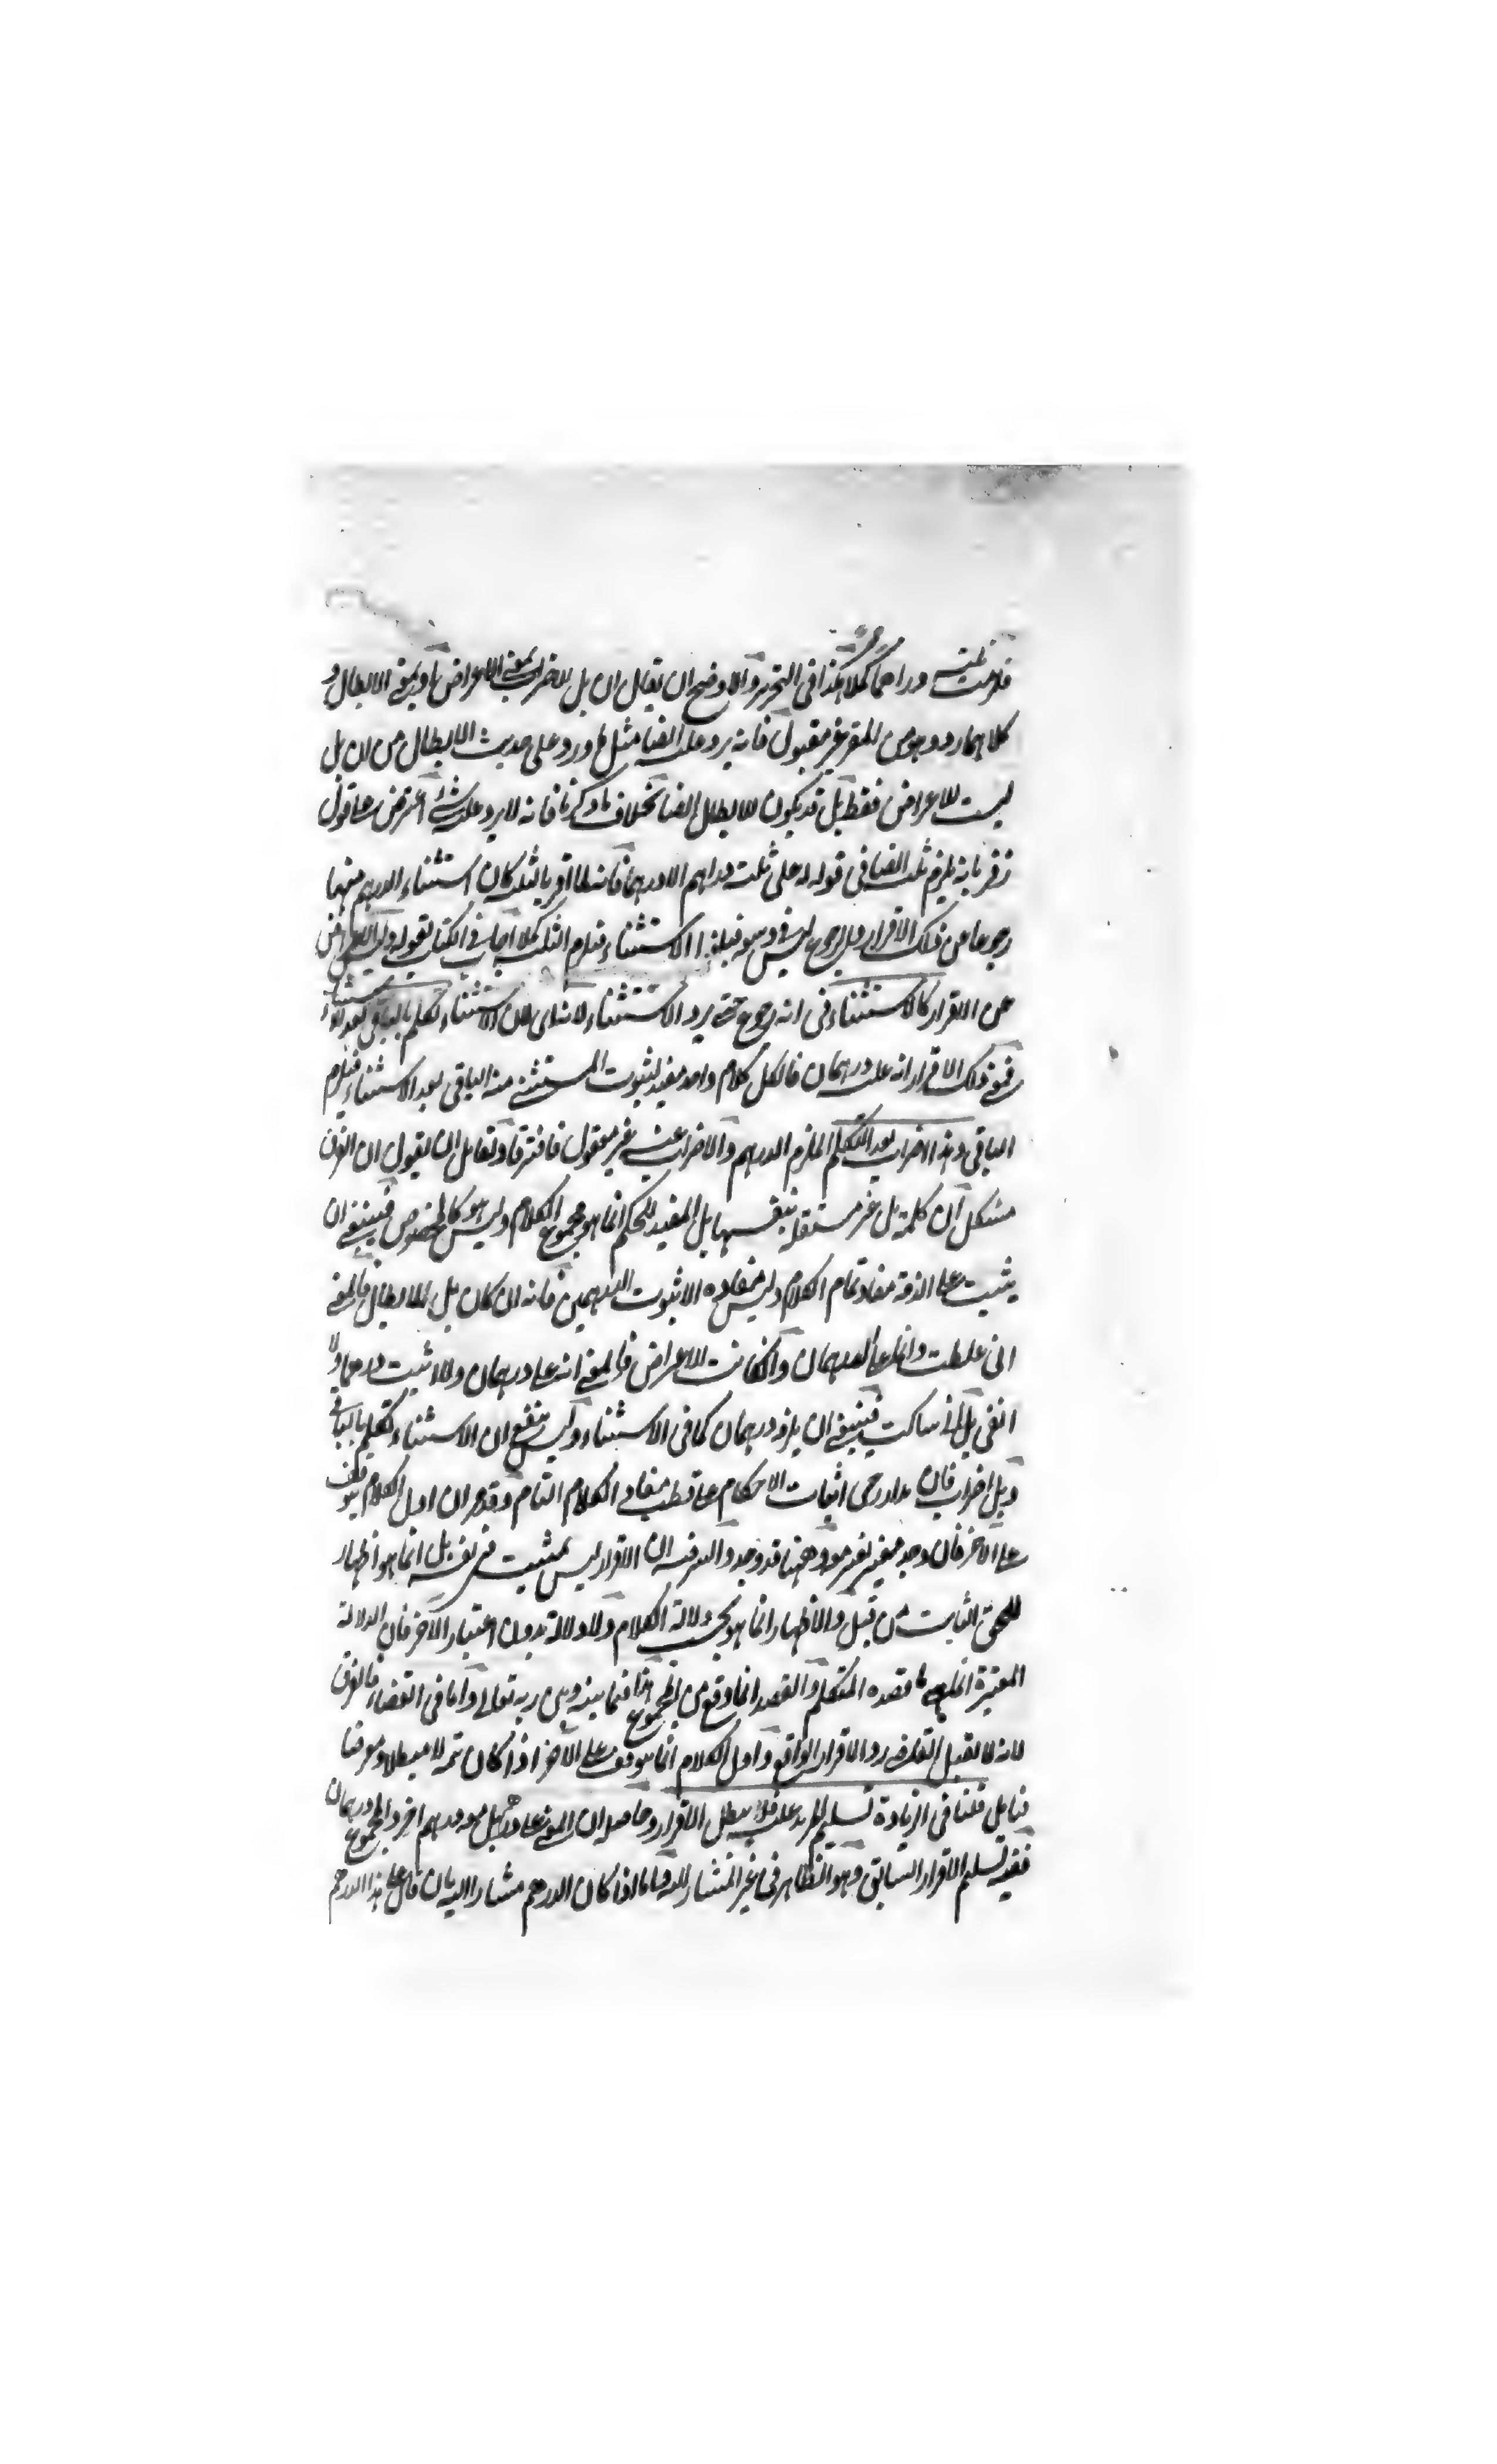 فلزمت ثلثة دراهما كملا هكذا في التحرير والاوضح ان يقال ان بل للاضراب بمعنى الاعراض او بمعنى الابطال و
كلاهما رد وهو من المقر غير مقبول فانه يرد عليه ايضا مثل ما ورد على حديث الابطال من ان بل
ليست للاعراض فقط بل قد يكون للابطال ايضا بخلاف ما ذكرنا فانه لا يرد عليه شئ اعترض على قول
زفر بانه يلزم ثلث ايضا في قوله له علي ثلث دراهم الا درهما فانه لما اقر بالثلث كان استثناء الدرهم منها
رجوعا عن ذلك الاقرار والرجوع ليس في وسعه فيلغو الاستثناء فيلزم الثلث كملا اجاب في الكتاب بقوله وليس الاعراض
عن الاقرار كالاستثناء في انه رجوع حتى يرد الاستثناء لانه اي لان الاستثناء تكلم بالباقي بعد الاستثناء
فمعنى ذلك الاقرار انه عليه درهمان فالكل كلام واحد مفيد لثبوت المستثنى منه الباقي بعد الاستثناء فيلزم
الباقي وهذا اضراب بعد التكلم الملزم الدرهم والاضراب عنه غير معقول فافترقا ولقائل ان يقول ان الفرق
مشكل لان كلمة بل غير مستقلة بنفسها بل المفيد للحكم انما هو مجموع الكلام وليس هو كالمخصوص فينبغي ان
يثبت على الذمة مفاد تمام الكلام وليس مفاده الا ثبوت الدرهمين فانه ان كان بل للابطال فالمعنى
اني غلطت وانما علي الدرهمان وان كانت للاعراض فالمعنى انه علي درهمان ولا اثبت درهما ولا
انفي بل اني ساكت فينبغي ان يلزم درهمان كما في الاستثناء وليس ينفع ان الاستثناء تكلم بالباقي
وبل اضراب فان مدار رحى اثبات الاحكام على قطب مفاد الكلام التام وقد مر ان اول الكلام يتوقف
على الآخر فان وجد مغير يغير مؤداه وههنا قد وجد والسر فيه ان الاقرار ليس بمثبت في نفسه بل انما هو اظهار
للحق الثابت من قبل والاظهار انما هو بحسب دلالة الكلام ولا دلالة بدون اعتبار الآخر فان الدلالة
المعتبرة انما هي ما قصده المتكلم والقصد انما وقع من المجموع هذا فيما بينه وبين ربه تعالى واما في القضاء فالفرق
لانه لا يقبل القاضي رد الاقرار الواقع واول الكلام انما يتوقف على الآخر اذا كان تتمة لا مبطلا ومعرضا
فتأمل قلنا في الزيادة تسليم المزيد عليه فلا يبطل الاقرار وحاصله ان المعنى علي درهم بل معه درهم آخر والمجموع درهمان
ففيه تسليم الاقرار السابق وهو الظاهر في غير المشار اليه واما اذا كان الدرهم مشارا اليه بان قال علي هذا الدرهم